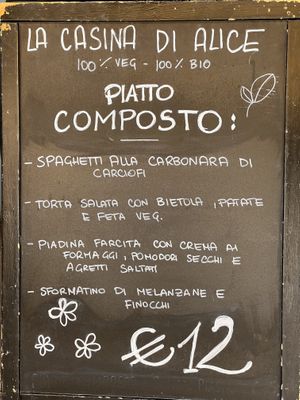 LA CASINA DI ALICE
100% VEG - 100% BIO
PIATTO
COMPOSTO:
- SPAGHETTI ALLA CARBONARA DI
CARCIOFI
- TORTA SALATA CON BIETOLA, PATATE
E FETA VEG.
- PIADINA FARCITA CON CREMA AI
FORMAGGI, POMODORI SECCHI E
AGRETTI SALTATI
- SFORMATINO DI MELANZANE E
FINOCCHI
€12